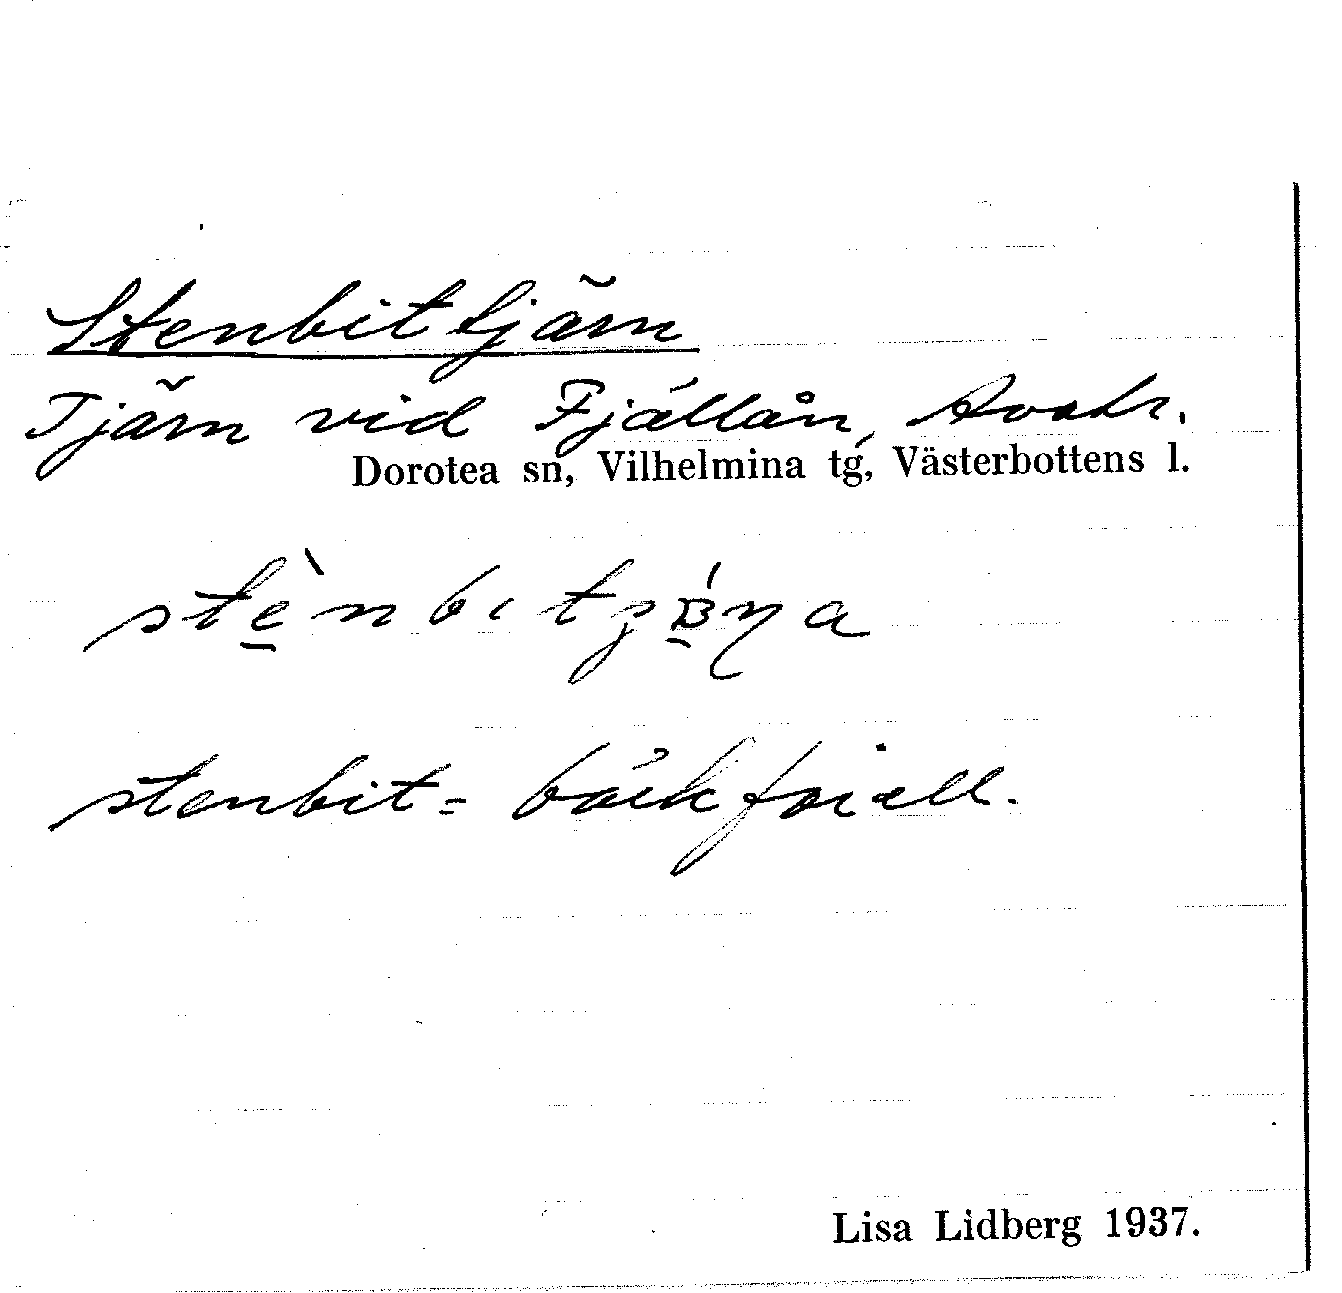 Stenbittjärn
Tjärn vid Fjällån,
Dorotea sn, Vilhelmina tg, Västerbottens l.
stenbit = bäckforell.
Lisa Lidberg 1937.